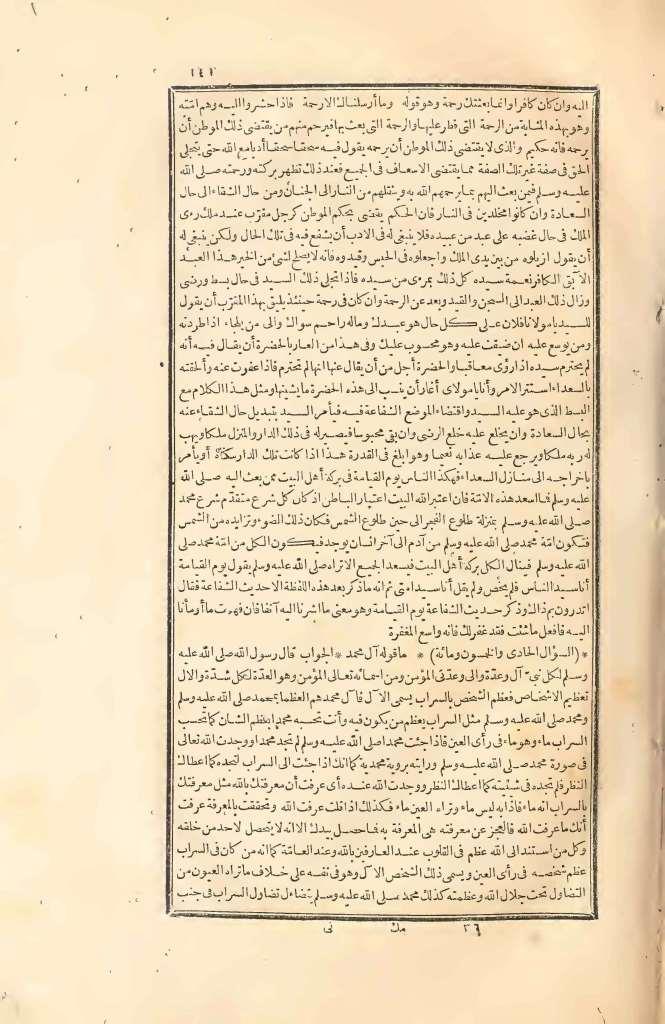 ١٤١
اليه وان كان كافرا وانما بعثتك رحمة وهو قوله وما أرسلناك الارحمة فاذا حشروا اليه وهم امّته
وهو بهذه المثابة من الرحمة التى فطر عليها والرحمة التى بعث بها فيرحم منهم من يقتضى ذلك الموطن أن
يرحمه فانه حكيم والذى لا يقتضى ذلك الموطن أن يرحمه يقول فيه سحقا سحقا أدبا مع الله حتى يتجلى
الحق فى صفة غير تلك الصفة مما يقتضى الاسعاف فى الجميع فعند ذلك تظهر بركته ورحمته صلى الله
عليه وسلم فيمن بعث اليهم بما يرحمهم الله به وينقلهم من النار الى الجنان ومن حال الشقاء الى حال
السعادة وان كانوا مخلدين فى النار فان الحكم يقضى بحكم الموطن كرجل مقرّب عند ملك رءى
الملك فى حال غضبه على عبد من عبيده فلا ينبغى له فى الادب أن يشفع فيه فى تلك الحال ولكن ينبغى له
أن يقول ازيلوه من بين يدى الملك واجعلوه فى الحبس وقيدوه فانه لا يصلح لشئ من الخير هذا العبد
الآبق الكافر نعمة سيده كل ذلك بمرءى من سيده فاذا تجلى ذلك السيد فى حال بسط ورضى
وزال ذلك العبد الى السجن والقيد وبعد عن الرحمة وان كان فى رحمة حينئذ يليق بهذا المقرّب أن يقول
للسيد يا مولانا فلان على كل حال هو عبدك وماله راحم سواك والى من يلجاء اذا طردته
ومن يوسع عليه ان ضيقت عليه وهو محسوب عليك وفى هذا من العار بالحضرة أن يقال فيه أنه
لم يحترم سيده اذا رؤى معاقبا والحضرة أجل من أن يقال عنها انها لم تحترم فاذا عفوت عنه وألحقته
بالسعداء استتر الامر وأنا يا مولاى أغار أن ينسب الى هذه الحضرة ما يشينها ومثل هذا الكلام مع
البسط الذى هو عليه السيد واقتضاء الموضع الشفاعة فيه فيأمر السيد بتبديل حال الشقاء عنه
بحال السعادة وان يخلع عليه خلع الرضى وان بقى محبوسا فيصير له فى ذلك الدار والمنزل ملكا ويهب
له ربه ملكا ويرجع عليه عذابه نعيما وهو ابلغ فى القدرة هذا اذا كانت تلك الدار سكناه أو يأمر
باخراجه الى منازل السعداء فهكذا الناس يوم القيامة فى بركة أهل البيت ممن بعث اليه صلى الله
عليه وسلم فما اسعد هذه الامّة فان اعتبر الله البيت اعتبار الباطن اذ كان كل شرع متقدّم شرع محمد
صلى الله عليه وسلم بمنزلة طلوع الفجر الى حين طلوع الشمس فكان ذلك الضوء وتزايده من الشمس
فتكون امّة محمد صلى الله عليه وسلم من آدم الى آخر انسان يوجد فيكون الكل من امّة محمد صلى
الله عليه وسلم فينال الكل بركة أهل البيت فيسعد الجميع الاتراه صلى الله عليه وسلم يقول يوم القيامة
أنا سيد الناس فلم يخص ولم يقل أنا سيد امتى ثم انه ما ذكر بعد هذه اللفظة الاحديث الشفاعة فقال
اتدرون بم ذاك وذكر حديث الشفاعة يوم القيامة وهو معنى ما اشرنا اليه آنفا فان فهمت ما أومأنا
اليه فافعل ما شئت فقد غفر لك فانه واسع المغفرة
* (السؤال الحادى والخمسون ومائة) * ما قوله آل محمد * الجواب قال رسول الله صلى الله عليه
وسلم لكل نبىّ آل وعدة والى وعدتى المؤمن ومن اسمائه تعالى المؤمن وهو العدّة لكل شدّة والال
تعظيم الاشخاص فعظم الشخص بالسراب يسمى الآل فاآل محمد هم العظماء بمحمد صلى الله عليه وسلم
ومحمد صلى الله عليه وسلم مثل السراب يعظم من يكون فيه وأنت تحسبه محمدا بعظم الشان كما تحسب
السراب ماء وهو ماء فى رأى العين فاذا جئت محمدا صلى الله عليه وسلم لم تجد محمدا ووجدت الله تعالى
فى صورة محمد صلى الله عليه وسلم ورايته بروية محمدية كما انك اذا جئت الى السراب لتجده كما اعطاك
النظر فلم تجده فى شيئيته كما اعطاك النظر ووجدت الله عنده أى عرفت أن معرفتك بالله مثل معرفتك
بالسراب انه ماء فاذا به ليس ماء وتراه العين ماء فكذلك اذا قلت عرفت الله وتحققت بالمعرفة عرفت
أنك ما عرفت الله فالعجز عن معرفته هى المعرفة به فما حصل بيدك الا انه لا يتحصل لاحد من خلقه
وكل من استند الى الله عظم فى القلوب عند العارفين بالله وعند العامّة كما انه من كان فى السراب
عظم شخصه فى رأى العين ويسمى ذلك الشخص الآل وهو فى نفسه على خلاف ما تراه العيون من
التضاول تحت جلال الله وعظمته كذلك محمد صلى الله عليه وسلم يتضاءل تضاول السراب فى جنب
٣٦ مك نى